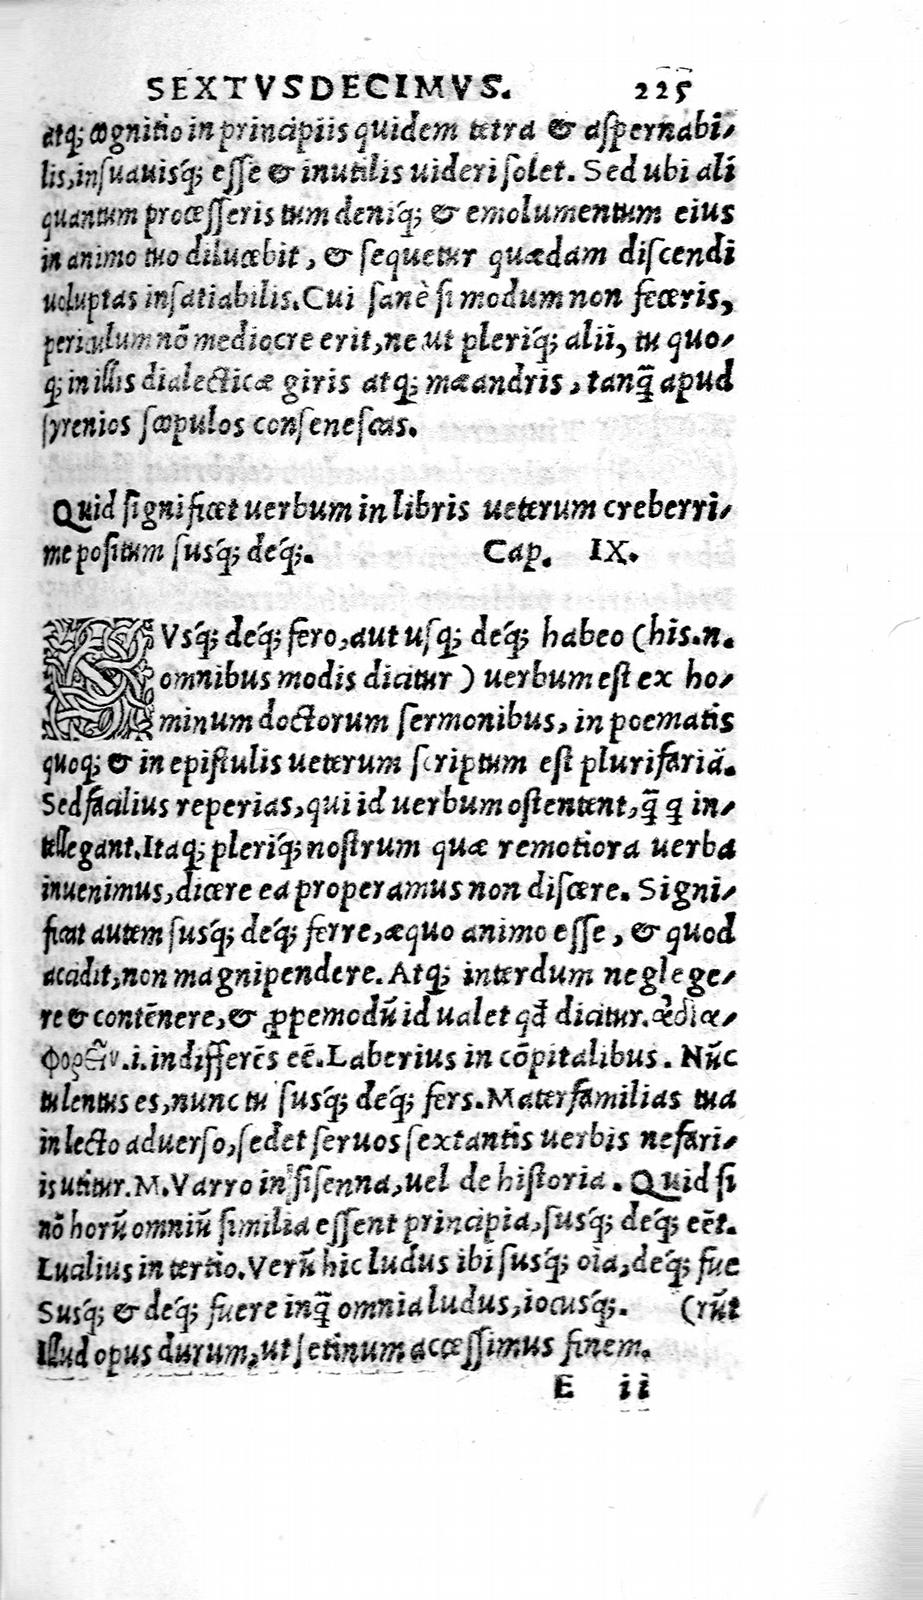 SEXTVSDECIMVS. 225
atq; cognitio in principiis quidem tetra & aspernabi-
lis, insuauisq́; esse & inutilis uideri solet. Sed ubi ali
quantum processeris tum deniq́; & emolumentum eius
in animo tuo dilucebit, & sequetur quædam discendi
uoluptas insatiabilis. Cui sanè si modum non feceris,
periculum nõ mediocre erit, ne ut pleriq́; alii, tu quo-
q; in illis dialecticæ giris atq; mæandris, tanq̃ apud
syrenios scopulos consenescas.
Quid significet uerbum in libris ueterum creberri-
me positum susq́; deq́;. Cap. IX.
SVsq́; deq́; fero, aut usq; deq́; habeo (his.n.
omnibus modis dicitur) uerbum est ex ho-
minum doctorum sermonibus, in poematis
quoq; & in epistulis ueterum scriptum est plurifariã.
Sed facilius reperias, qui id uerbum ostentent, q̃ q in-
tellegant. Itaq; pleriq́; nostrum quæ remotiora uerba
inuenimus, dicere ea properamus non discere. Signi-
ficat autem susq́; deq́; ferre, æquo animo esse, & quod
accidit, non magnipendere. Atq; interdum neglege-
re & contẽnere, & ꝓpemodũ id ualet qđ dicitur. ἀδια-
φορεῖν .i. indifferẽs eẽ. Laberius in cõpitalibus. Nũc
tu lentus es, nunc tu susq́; deq́; fers. Mater familias tua
in lecto aduerso, sedet seruos sextantis uerbis nefari-
is utitur. M. Varro in sisenna, uel de historia. Quid si
nõ horũ omniũ similia essent principia, susq́; deq́; eẽt.
Lucilius in tertio. Verũ hic ludus ibi susq́; oĩa, deq́; fue
Susq́; & deq́; fuere inq̃ omnia ludus, iocusq́;. (rũt
Illud opus durum, ut setinum accessimus finem.
E ii